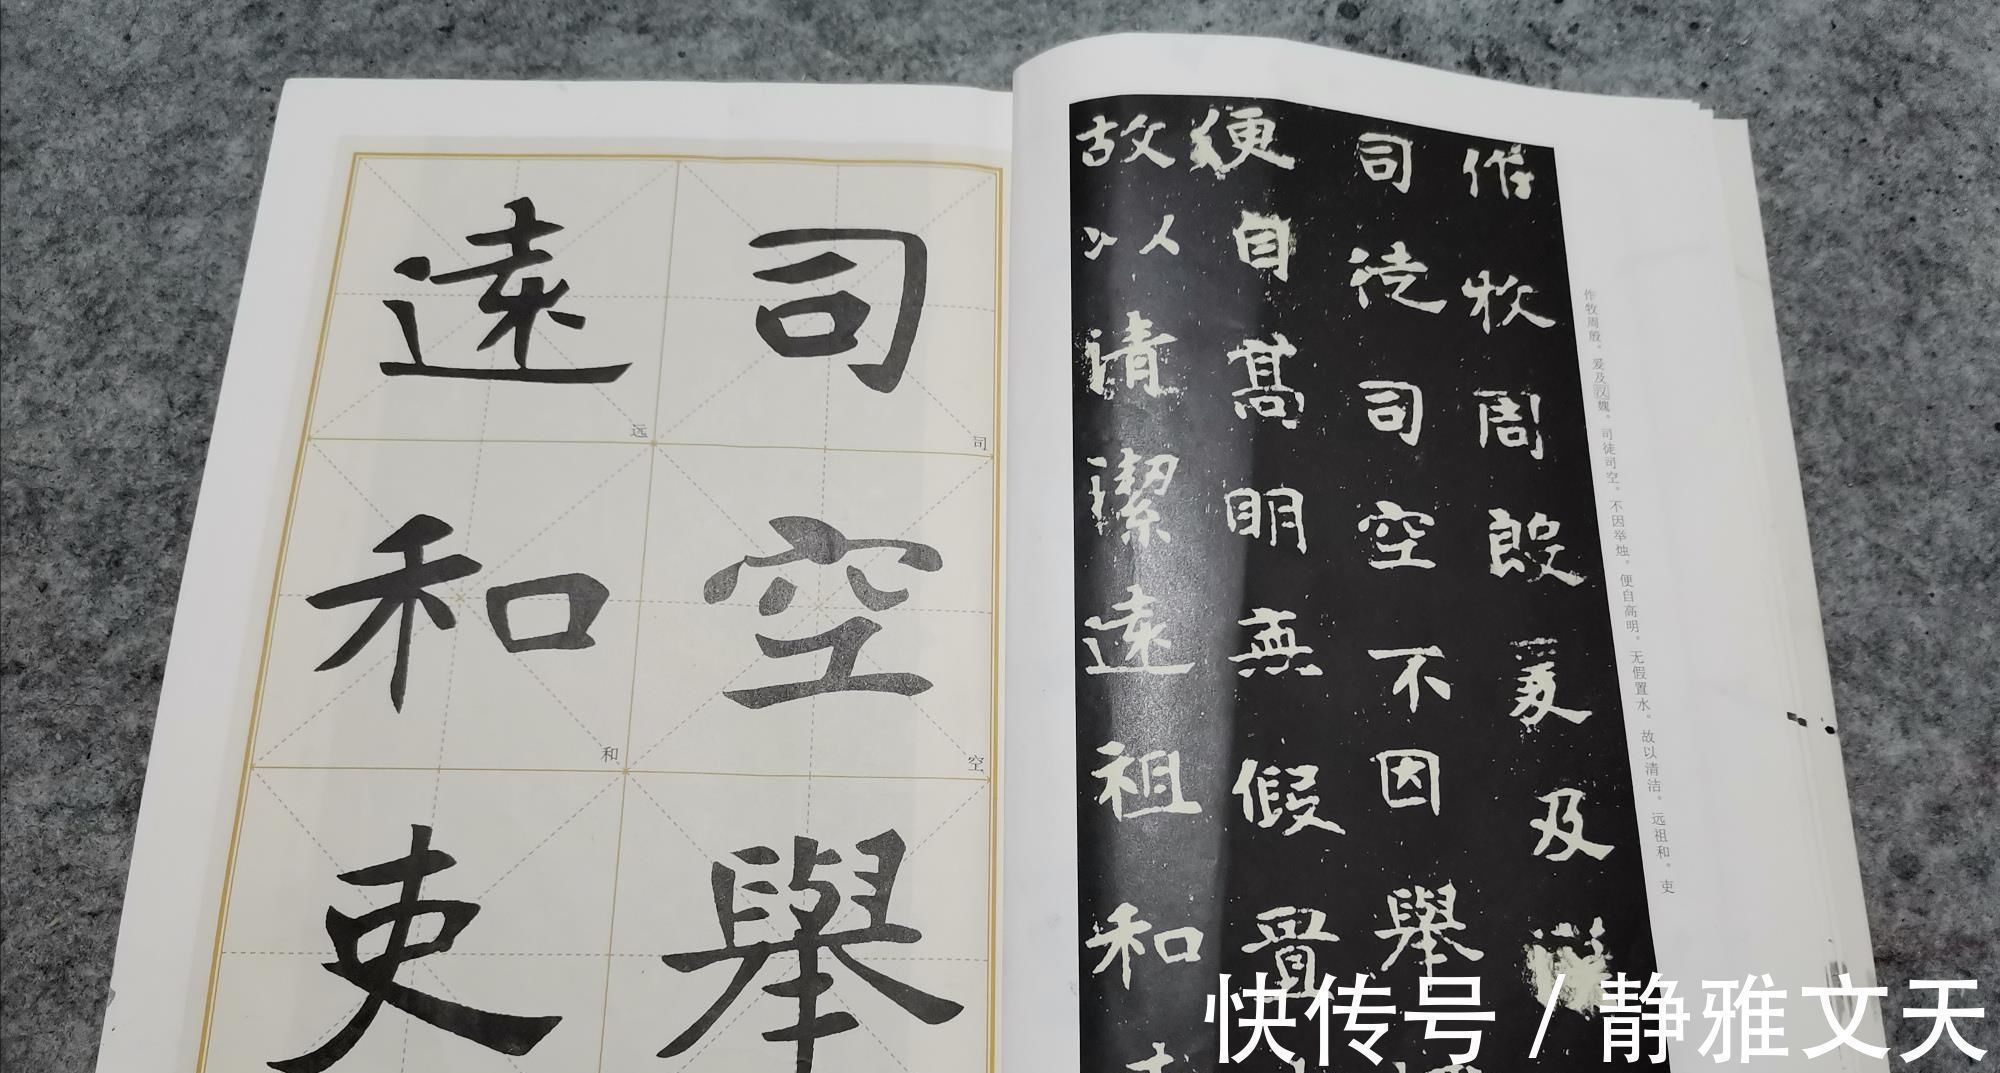 司
司
空
空
舉
遠
远
和
和
吏
作牧周殷爰及
司徒司空不因舉
便自高明無假置
故以清潔遠祖和
作牧周殷。爰及汉魏。司徒司空。不因举烛。便自高明。无假置水。故以清洁。远祖和。吏
快传号 / 静雅文天